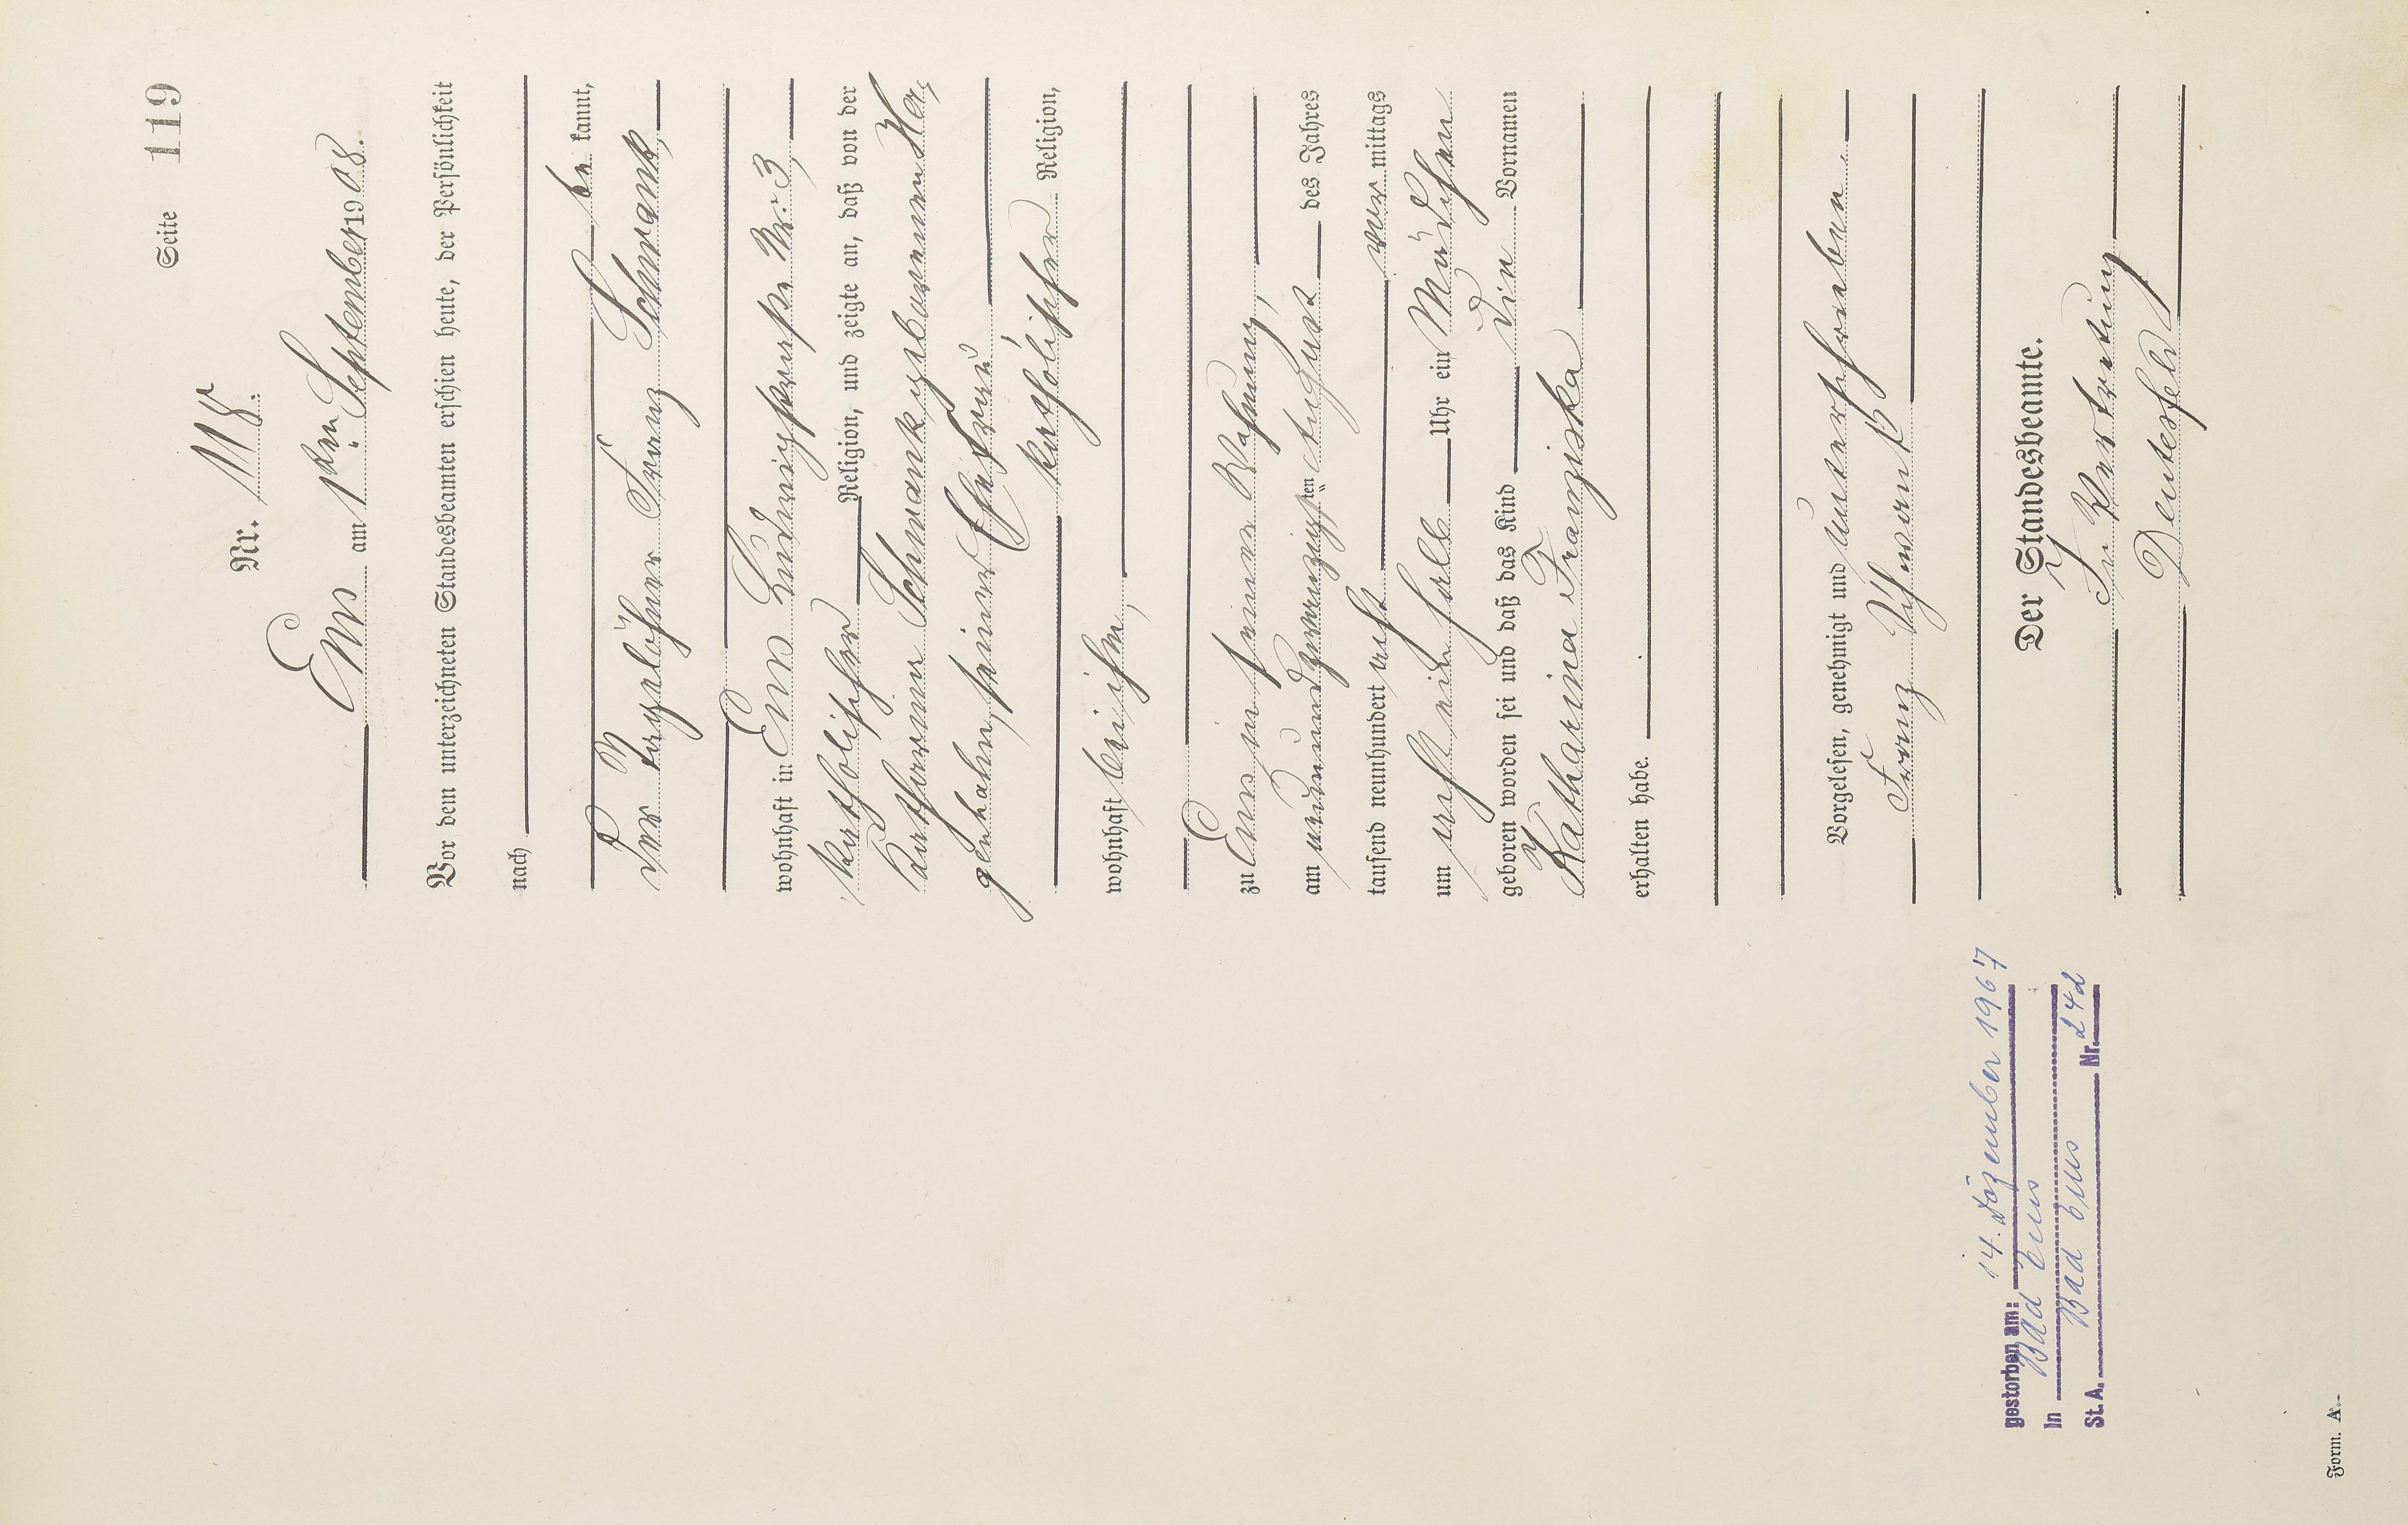 Seite 119
Nr. 118.
Ems am 1ten September 1908.
Vor dem unterzeichneten Standesbeamten erschien heute, der Persönlichkeit
nach
be kannt,
der Tagelöhner Franz Schwank,
wohnhaft in Ems Ludwigstraße Nr: 3,
katholischer Religion, und zeigte an, daß von der
Katharina Schwank geborenen Her,
genhahn, seiner Ehefrau
katholischer Religion,
wohnhaft bei ihm,
zu Ems in seiner Wohnung,
am neunundzwanzigsten August des Jahres
tausend neunhundert acht vor mittags
um acht ein halb Uhr ein Mädchen
geboren worden sei und daß das Kind die Vornamen
Katharina Franziska
erhalten habe.
Vorgelesen, genehmigt und unterschrieben
Franz Schwank
Der Standesbeamte.
In Vertretung
Deutesfeld
gestorben am: 14. Dezember 1967
In Bad Ems
St. A. Bad Ems Nr. 242
Form. A.